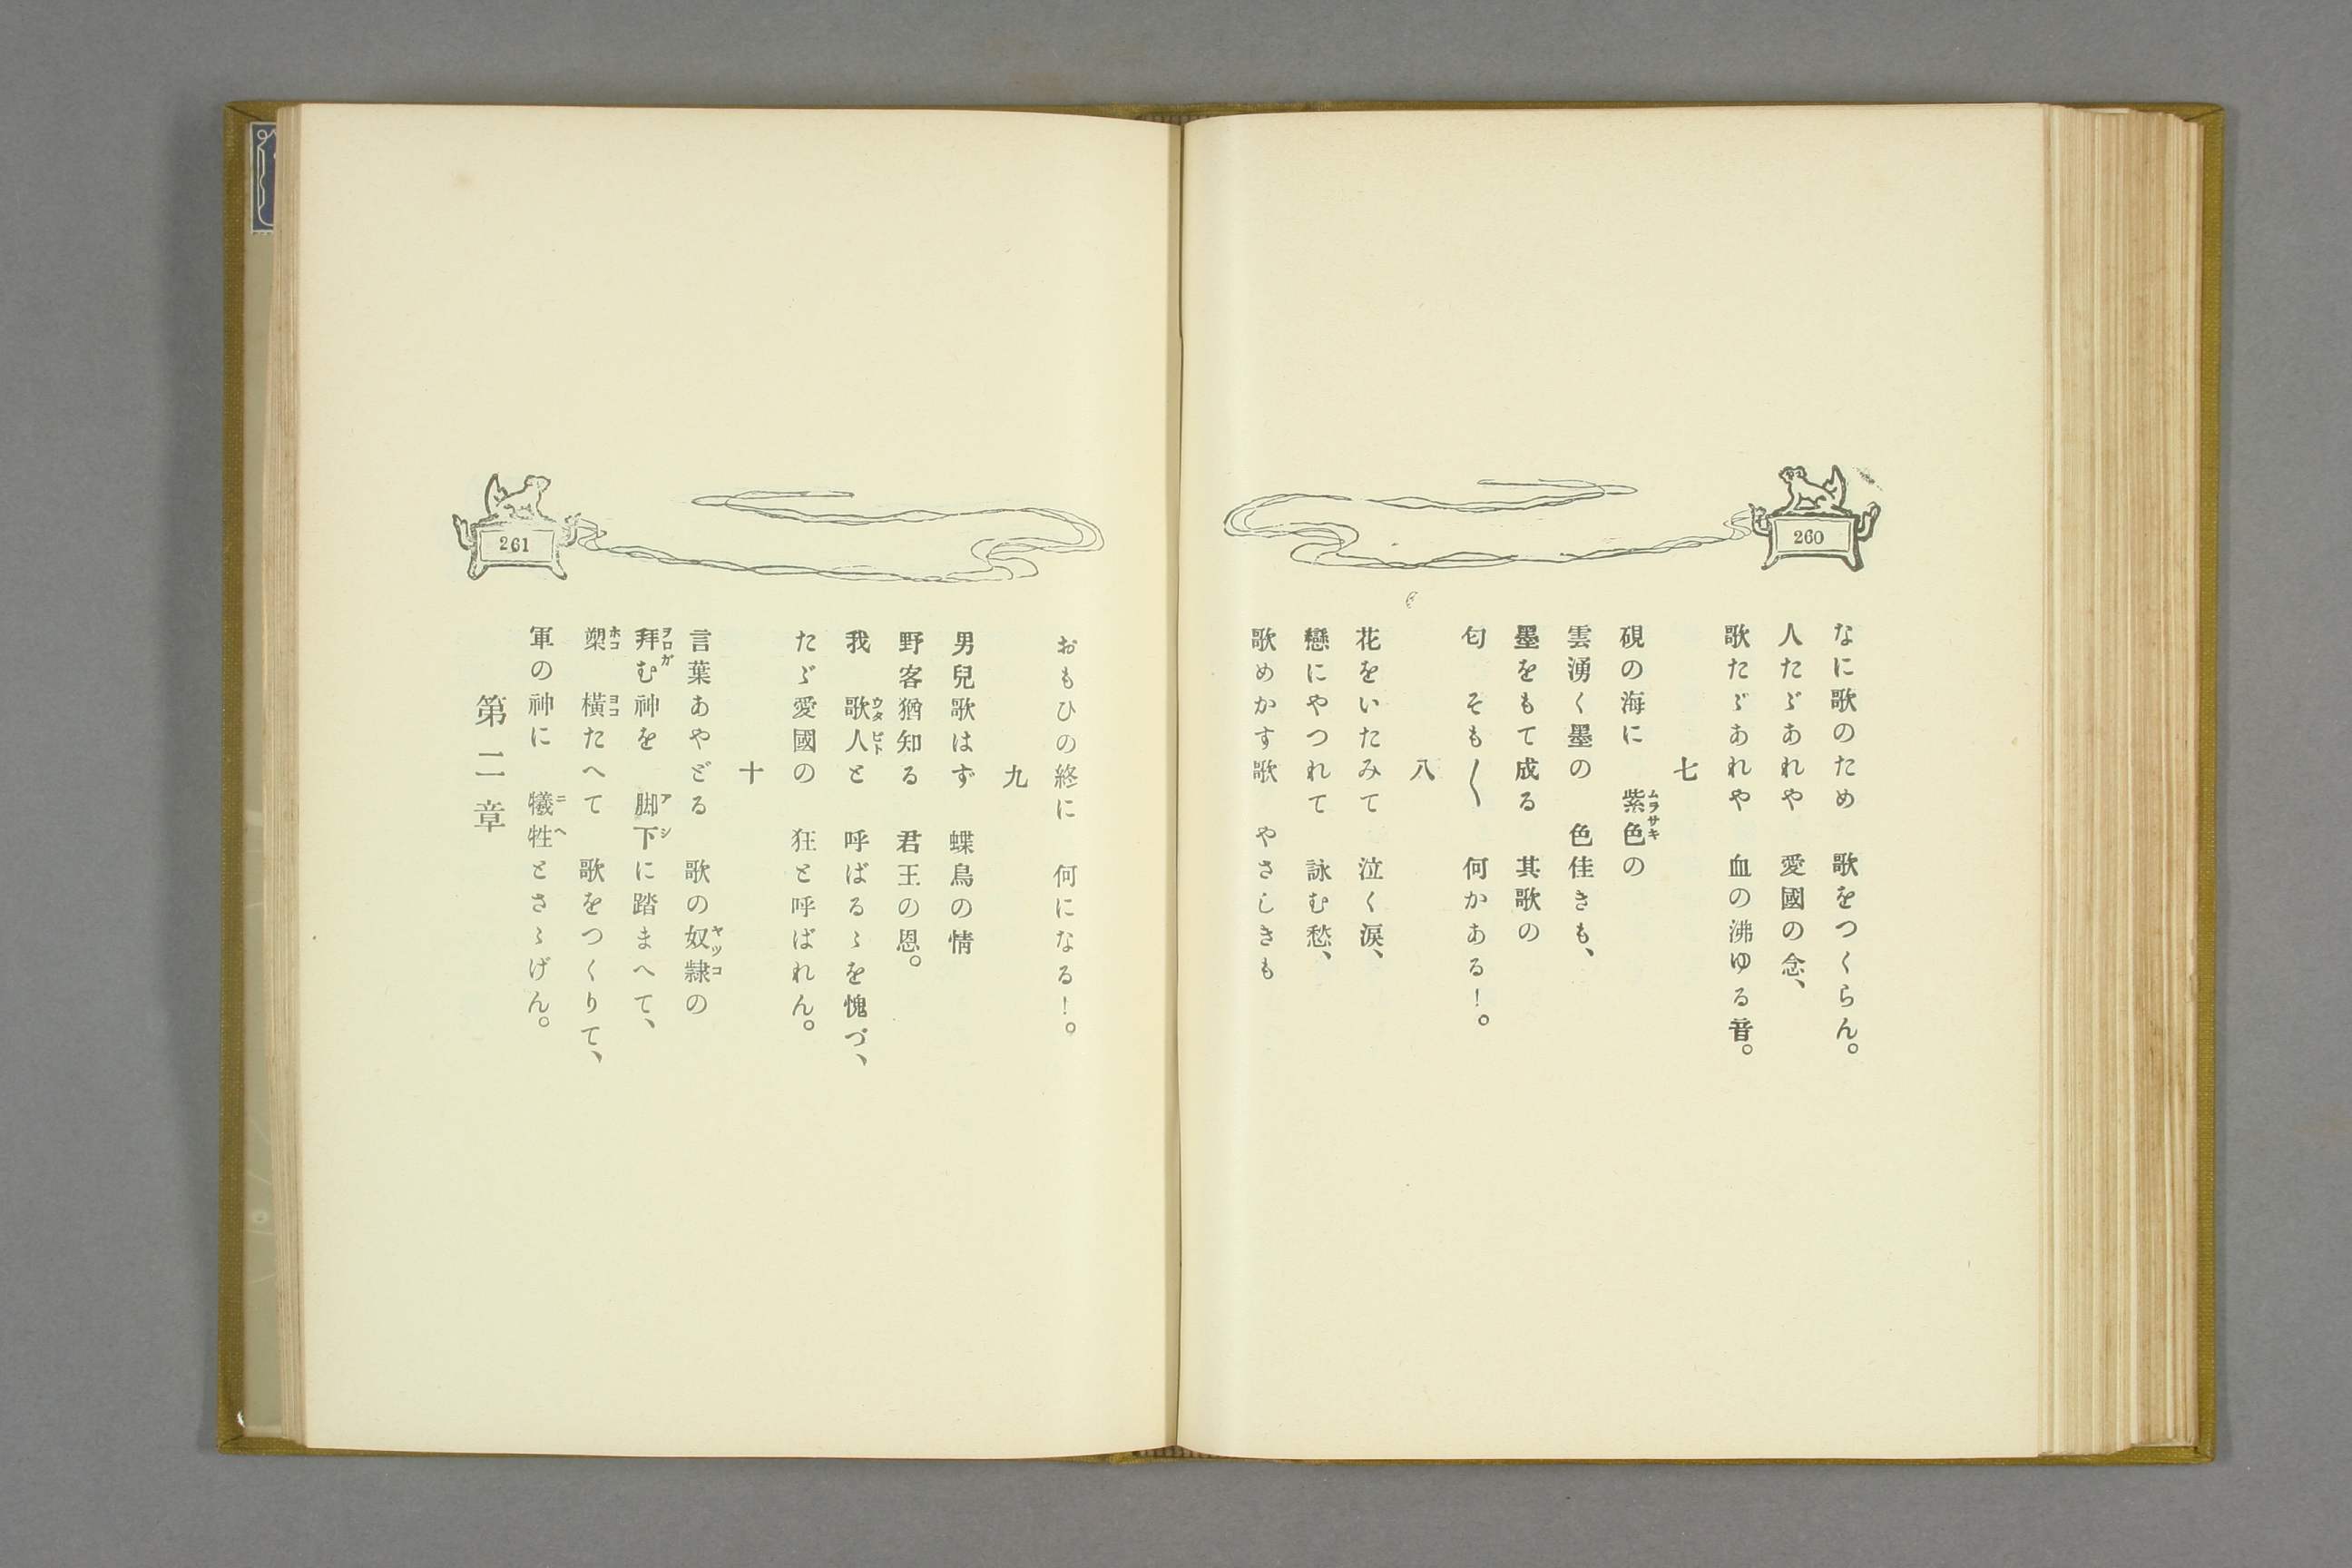 260
なに歌のため　歌をつくらん。
人たゞあれや　愛國の念、
歌たゞあれや　血の沸ゆる音。
七
硯の海に　紫色の
雲湧く墨の　色佳きも、
墨をもて成る　其歌の
匂　そも〳〵　何かある！。
八
花をいたみて　泣く涙、
戀にやつれて　詠む愁、
歌めかす歌　やさしきも
261
おもひの終に　何になる！。
九
男兒歌はず　蝶鳥の情
野客猶知る　君王の恩。
我　歌人と　呼ばるゝを愧づ、
たゞ愛國の　狂と呼ばれん。
十
言葉あやどる　歌の奴隸の
拜む神を　脚下に踏まへて、
槊　橫たへて　歌をつくりて、
軍の神に　犧牲とさゝげん。
第二章